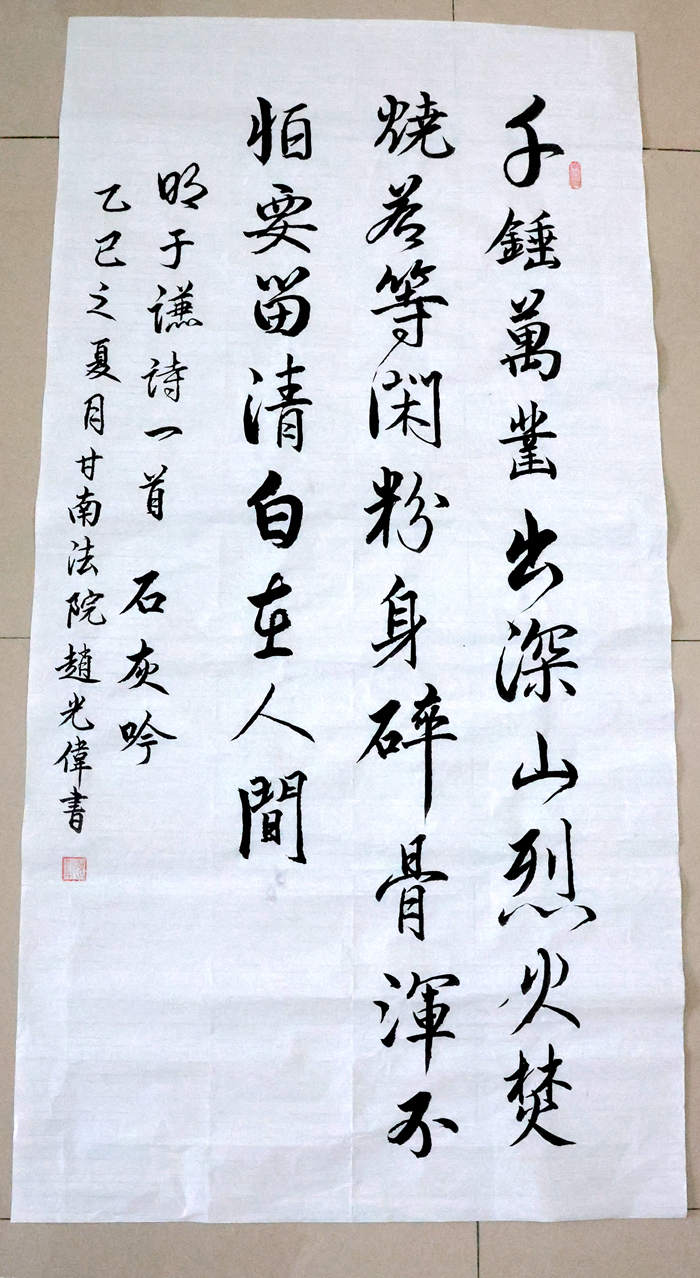 千錘萬鑿出深山烈火焚
燒若等閑粉身碎骨渾不
怕要留清白在人間
明于謙詩一首 石灰吟
乙巳之夏月甘南法院趙光偉書